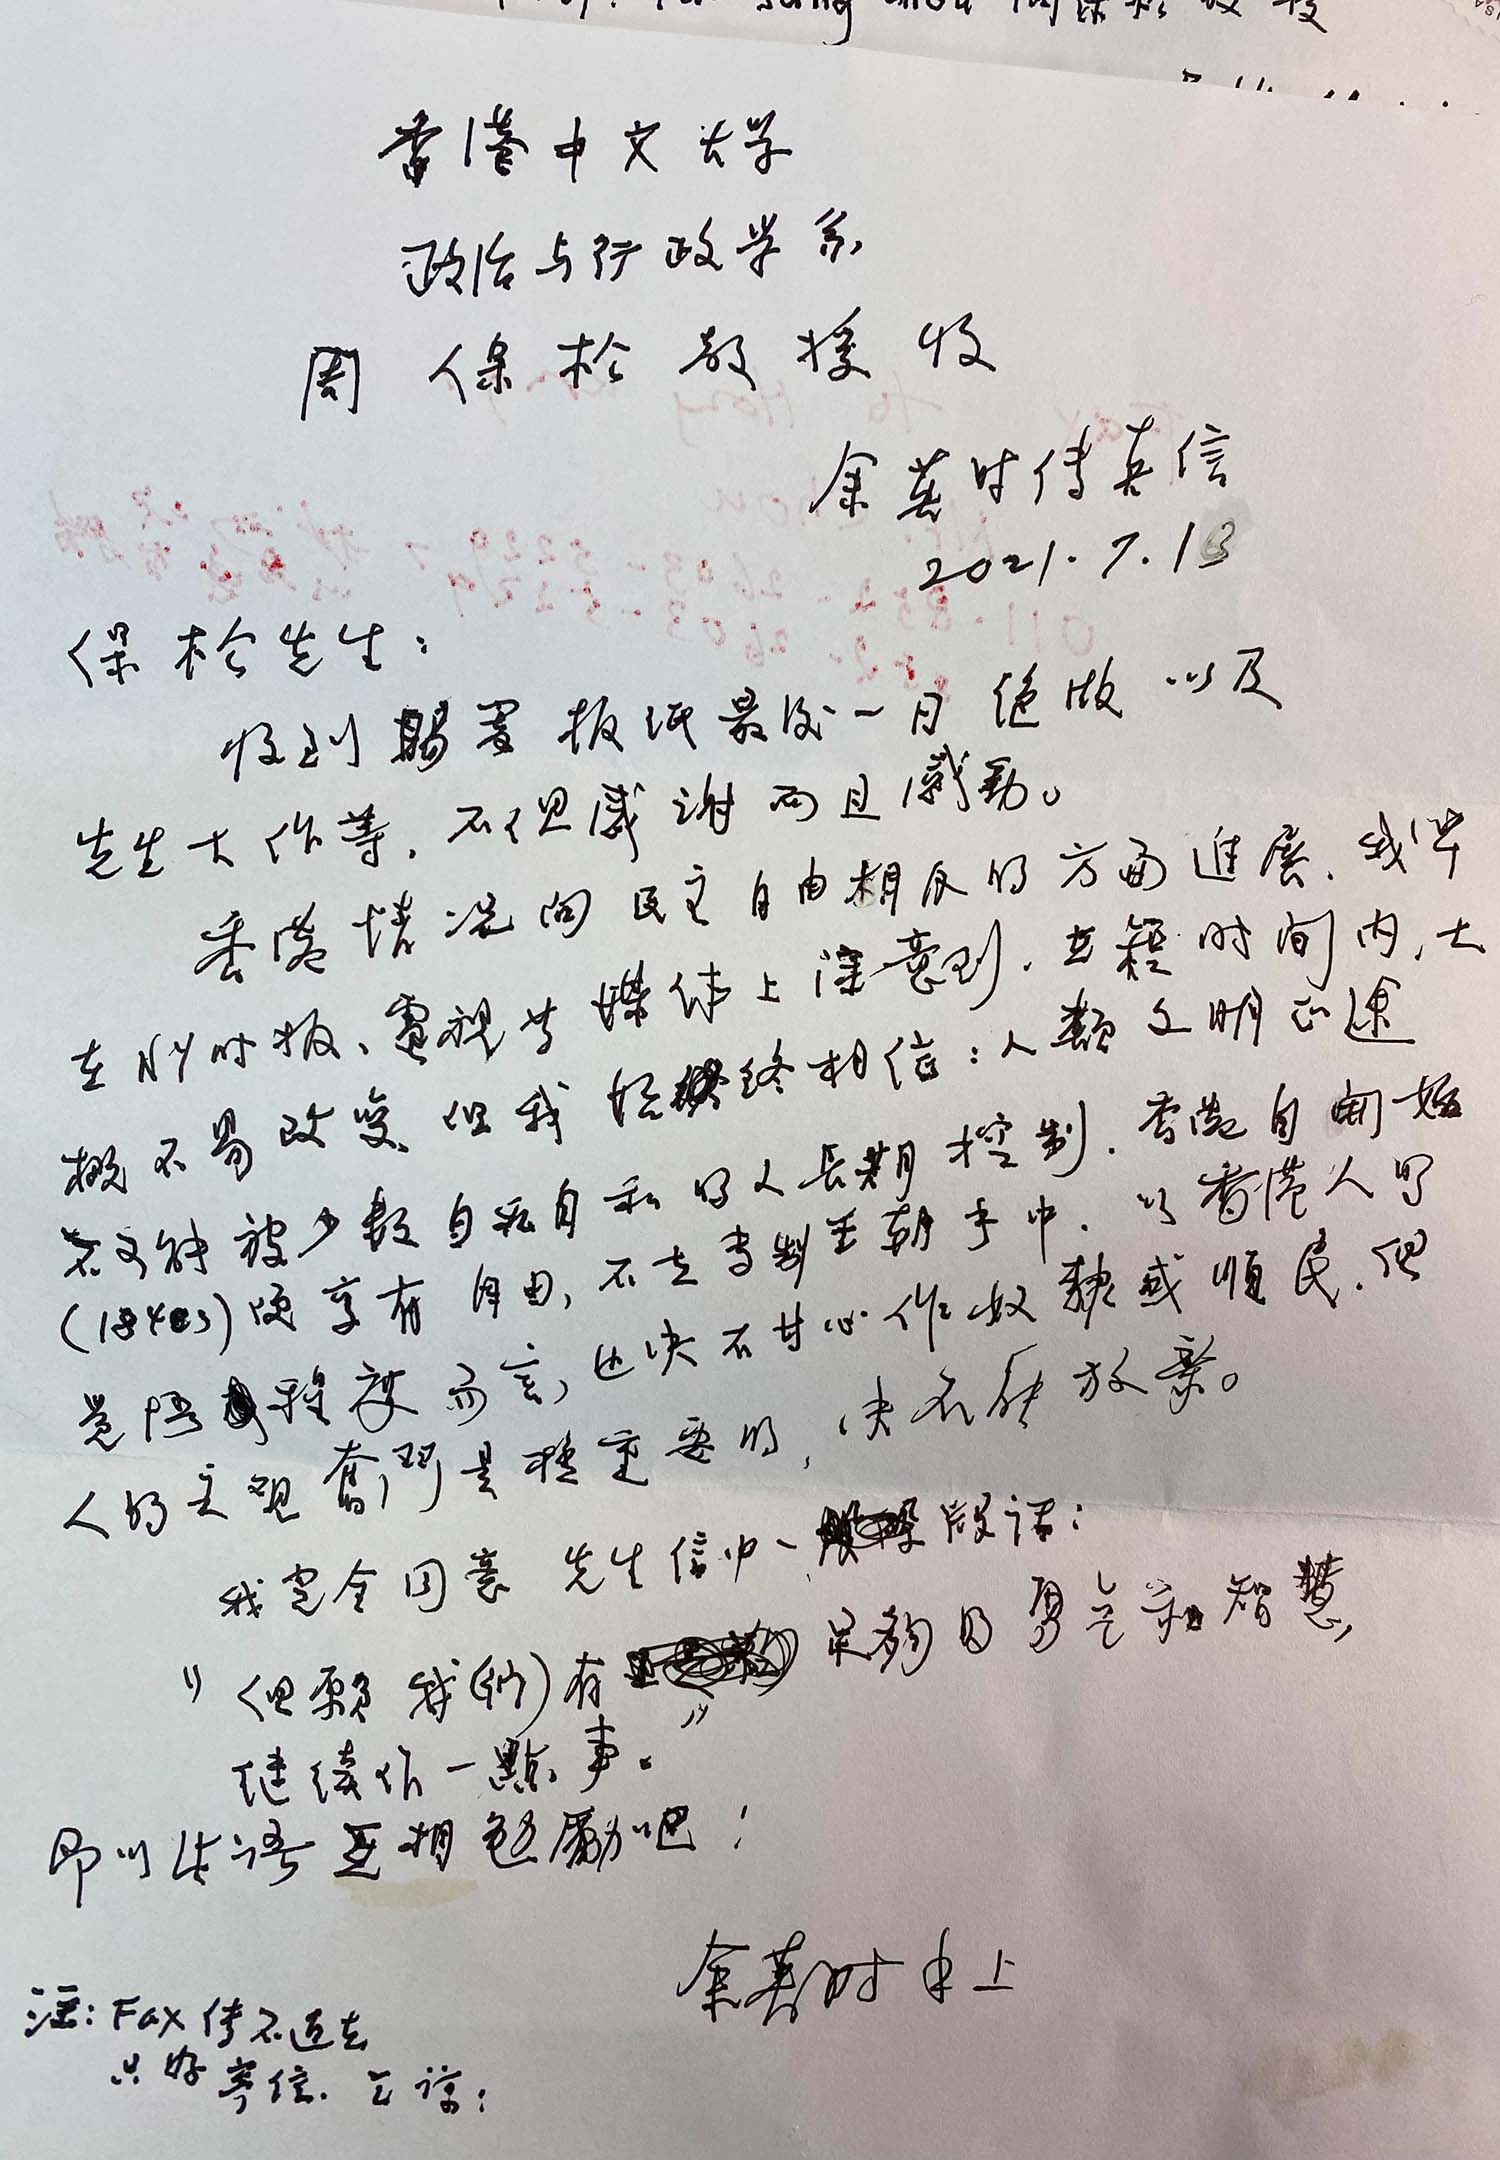 香港中文大学
政治与行政学系
周保松教授收
余英时传真信
2021.7.13
保松先生：
收到赐寄报纸最後一日绝版以及
先生大作等，不但感谢而且感动。
香港情况向民主自由相反的方面進展，我毕
在NY时报、電視等媒体上注意到，在短时间内，大
概不易改变，但我始終相信：人類文明正途
不可能被少数自私自利的人長期控制，香港自開始
(1840s)便享有自由，不在专制王朝手中，以香港人的
覺悟程度而言，也决不甘心作奴隸或順民，但
人的主观奮鬥是極重要的，决不能放棄。
我完全同意先生信中一段话：
"但願我(們)有足夠的勇气和智慧，
继续作一點事。"
即以此语互相勉勵吧！
余英时手上
注：Fax传不过去
只好寄信，乞谅：